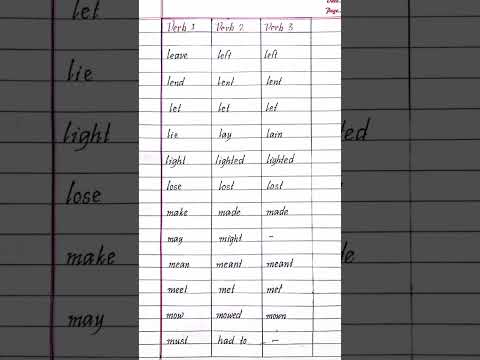 Date
Page
Verb 1 Verb 2 Verb 3
leave left left
lend lent lent
let let let
lie lay lain
light lighted lighted
lose lost lost
make made made
may might -
mean meant meant
meet met met
mow mowed mown
must had to -
let
lie
light
lose
make
may